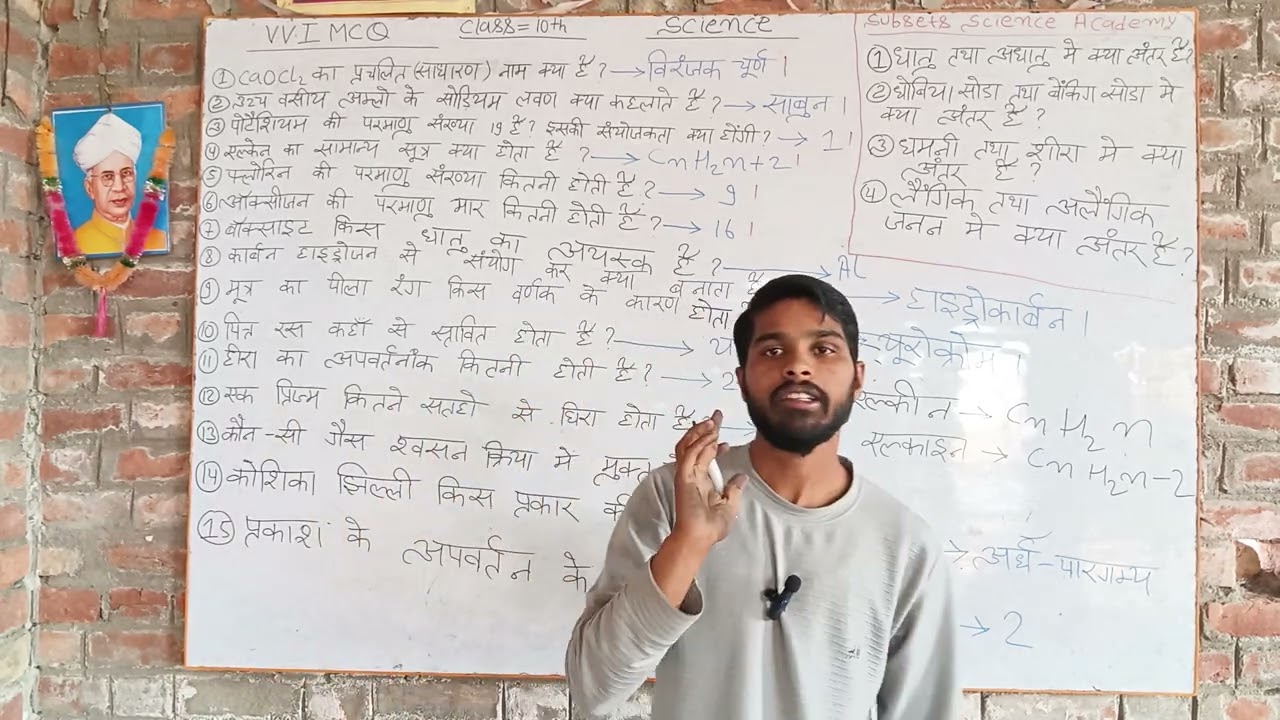 VV.I MCQ
Class=10th
Science
① CaOCl₂ का प्रचलित (साधारण) नाम क्या है ? → विरंजक चूर्ण ।
② उच्च वसीय अम्लो के सोडियम लवण क्या कहलाते है ? → साबुन ।
③ पोटैशियम की परमाणु संख्या 19 है ? इसकी संयोजकता क्या होगी ? → 1 ।
④ एल्केन का सामान्य सूत्र क्या होता है ? → CnH2n+2 ।
⑤ फ्लोरिन की परमाणु संख्या कितनी होती है ? → 9 ।
⑥ ऑक्सीजन की परमाणु भार कितनी होती है ? → 16 ।
⑦ बॉक्साइट किस धातु का अयस्क है ? → Al
⑧ कार्बन हाइड्रोजन से संयोग कर क्या बनाता है → हाइड्रोकार्बन ।
⑨ मूत्र का पीला रंग किस वर्णक के कारण होता यूरोक्रोम ।
⑩ पित्त रस कहाँ से स्त्रावित होता है ? →
⑪ हीरा का अपवर्तनांक कितनी होती है ? → 2
⑫ एक प्रिज्म कितने सतहो से घिरा होता है
⑬ कौन-सी गैस श्वसन क्रिया में मुक्त
⑭ कोशिका झिल्ली किस प्रकार की → अर्ध-पारगम्य
⑮ प्रकाश के अपवर्तन के → 2
एल्कीन → CnH2n
एल्काइन → CnH2n-2
Subsets Science Academy
① धातु तथा अधातु मे क्या अंतर है ?
② धोबिया सोडा तथा बेंकिंग सोडा मे
क्या अंतर है ?
③ धमनी तथा शीरा मे क्या
अंतर है ?
④ लैंगिक तथा अलैंगिक
जनन मे क्या अंतर है ?